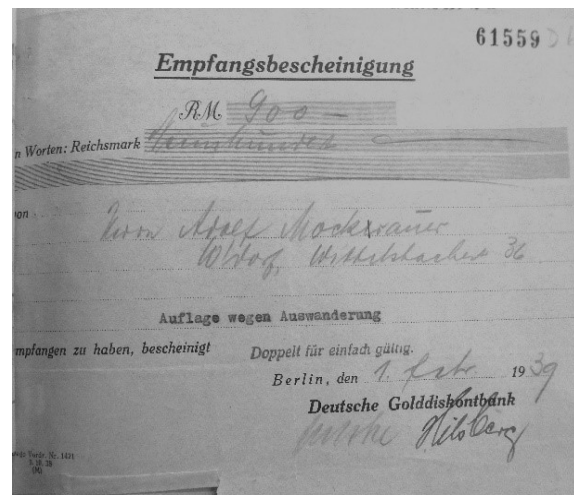 61559 D
Empfangsbescheinigung
RM 900 —
n Worten: Reichsmark Neunhundert
on
Herrn Adolf Mockrauer
W'dorf, Wittelsbacher 36
Auflage wegen Auswanderung
mpfangen zu haben, bescheinigt Doppelt für einfach gültig.
Berlin, den 1. Febr. 1939
Deutsche Golddiskontbank
Hilsberg
Vordr. Nr. 1431